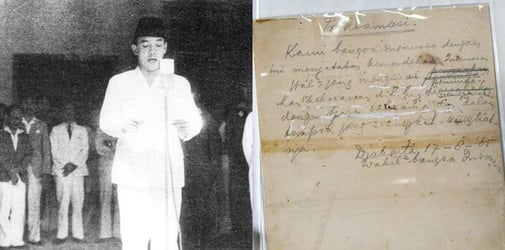 Proklamasi.
Kami bangsa Indonesia dengan
ini menjatakan kemerdekaan Indonesia
Hal2 jang mengenai
kan kekoeasaan d.l.l.,
dengan tjara saksama dan dalam
tempoh jang sesingkat-singkat
nja.
Djakarta, 17-8-05
Wakil bangsa Indonesia